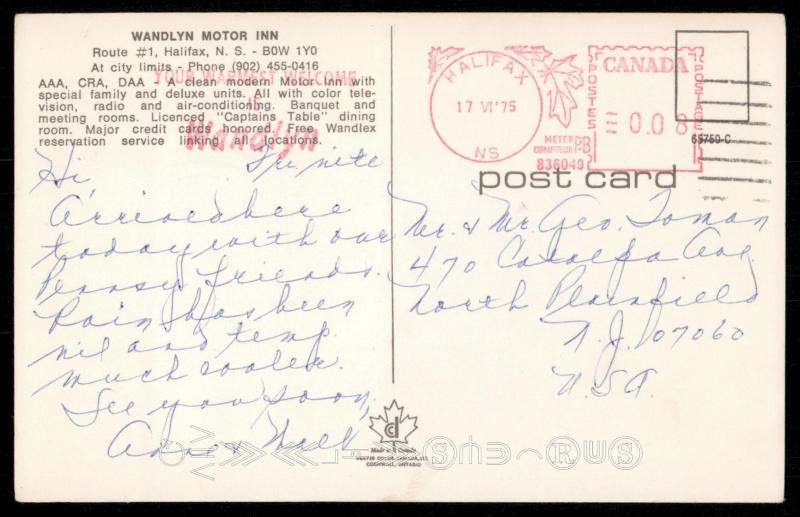 WANDLYN MOTOR INN
Route #1, Halifax, N. S. - B0W 1Y0
At city limits - Phone (902) 455-0416
AAA, CRA, DAA - A clean modern Motor Inn with
special family and deluxe units. All with color tele-
vision, radio and air-conditioning. Banquet and
meeting rooms. Licenced "Captains Table" dining
room. Major credit cards honored. Free Wandlex
reservation service linking all locations.
YOUR WARMEST WELCOME
IS
Wandlyn
Hi, Fri nite
Arrived here
today with our
Pennsy friends.
Rain has been
nil and temp.
much cooler.
See you soon,
HALIFAX
17 VI '75
NS
CANADA
POSTES
POSTAGE
0.08
METER
COMPTEUR PB
836049
65750-C
post card
Mr. & Mr. Geo. Toman
470 Catalpa Ave.
North Plainfield
N. J. 07060
U.S.A.
Made in Canada
CORNWALL, ONTARIO